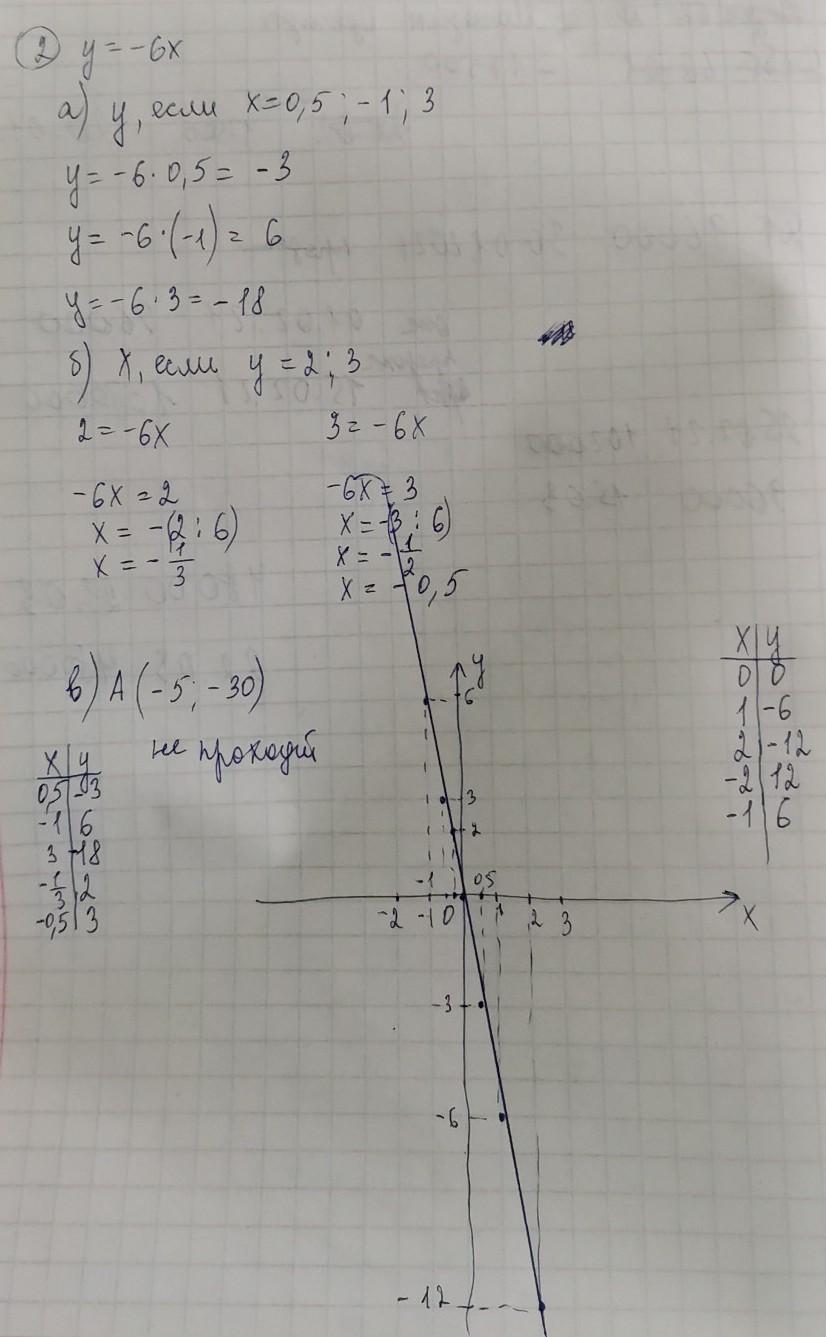 2 y = -6x
а) y, если x = 0,5 ; -1 ; 3
y = -6 · 0,5 = -3
y = -6 · (-1) = 6
y = -6 · 3 = -18
б) x, если y = 2 ; 3
2 = -6x
-6x = 2
x = -(2 : 6)
x = -1/3
3 = -6x
-6x = 3
x = -(3 : 6)
x = -1/2
x = -0,5
в) A (-5 ; -30)
не проходит
x | y
0,5 | -3
-1 | 6
3 | -18
-1/3 | 2
-0,5 | 3
y
6
3
2
-1 0,5
-2 -1 0 1 2 3
x
-3
-6
-12
x | y
0 | 0
1 | -6
2 | -12
-2 | 12
-1 | 6